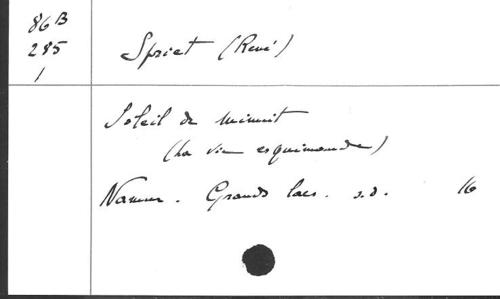 86 B
285
1
Spriet (René)
Soleil de minuit
(La vie esquimaude)
Namur. Grands lacs. s.d. 16